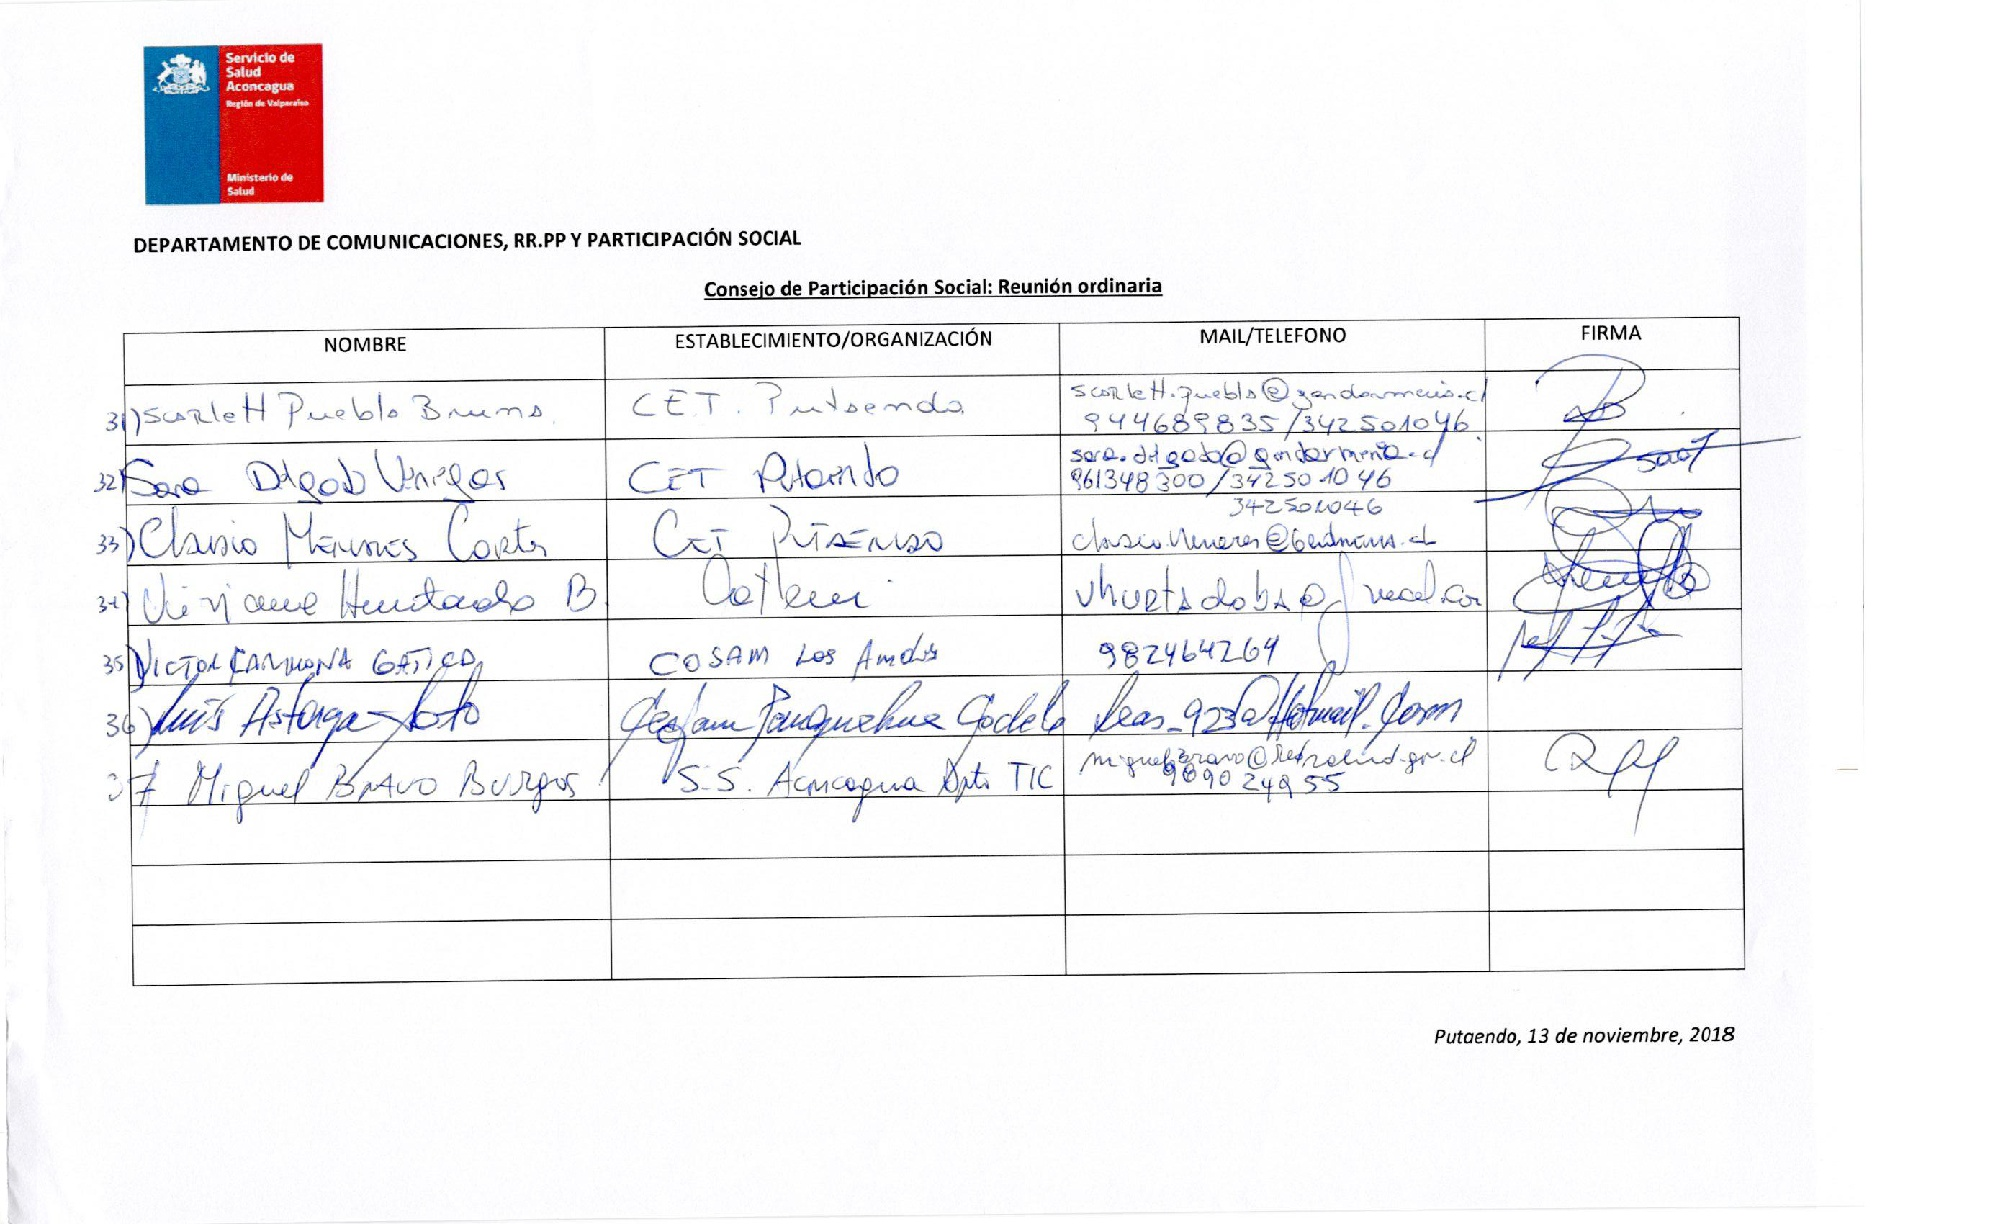 Servicio de
Salud
Aconcagua
Región de Valparaíso
Ministerio de
Salud
DEPARTAMENTO DE COMUNICACIONES, RR.PP Y PARTICIPACIÓN SOCIAL
Consejo de Participación Social: Reunión ordinaria
NOMBRE ESTABLECIMIENTO/ORGANIZACIÓN MAIL/TELEFONO FIRMA
31) Scarlett Pueblo Bruna C.E.T. Putaendo scarlett.pueblo@gendarmeria.cl
944689835/342501046
32) Sara Delgado Venegas CET Putaendo sara.delgado@gendarmeria.cl
961348300/342501046
342501046
33) Claudio Meneses Cortes CET PUTAENDO
34) Hurtado B
35) VICTOR CARMONA GATICA COSAM Los Andes 982464264
36) Luis Astorga Soto Panquehue leas_923@Hotmail.com
37 Miguel BRAVO Burgos S.S. Aconcagua Dpto TIC miguel.bravo@redsalud.gov.cl
909024955
Putaendo, 13 de noviembre, 2018